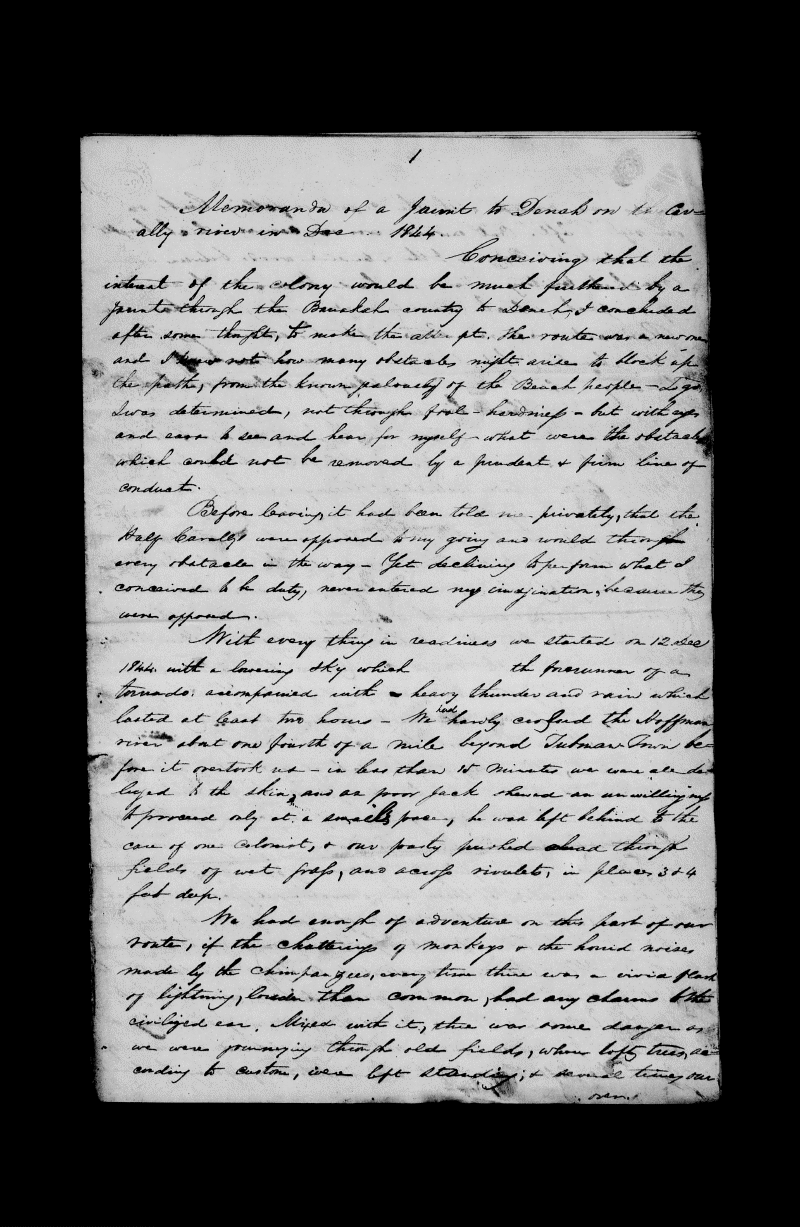 1
Memoranda of a Jaunt to Denah on the Cav-
ally river in Dec 1844.
Conceiving that the
interest of the colony would be much furthered by a
jaunt through the country to Denah, I concluded
after some thought, to make the attempt. The route was a new one
and I knew not how many obstacles might arise to block up
the path, from the known jealousy of the people -
I was determined, not through fool-hardiness - but with eyes
and ears to see and hear for myself - what were the obstacles
which could not be removed by a prudent & firm line of
conduct.
Before leaving, it had been told me privately, that the
Half Cavallys were opposed to my going and would through
every obstacle in the way - Yet declining to perform what I
conceived to be duty, never entered my imagination, because they
were opposed.
With every thing in readiness we started on 12 Dec
1844. with a lowering sky which th forerunner of a
tornado: accompanied with heavy thunder and rain which
lasted at least two hours - We had hardly crossed the Hoffman
river about one fourth of a mile beyond Tubman Town be-
fore it overtook us - in less than 10 minutes we were all de-
luged to the skin, and as poor Jack shewed an unwillingness
to proceed only at a snails pace, he was left behind to the
care of one colonist, & our party pushed ahead through
fields of wet grass, and across rivulets, in places 3 & 4
feet deep.
We had enough of adventure on this part of our
route, if the chatterings of monkeys & the horrid noises
made by the chimpanzees, every time there was a vivid flash
of lightning, louder than common, had any charms to the
civilized ear. Mixed with it, there was some danger as
we were journeying through old fields, whose lofty trees, ac-
cording to custom, were left standing; & several times our
over.